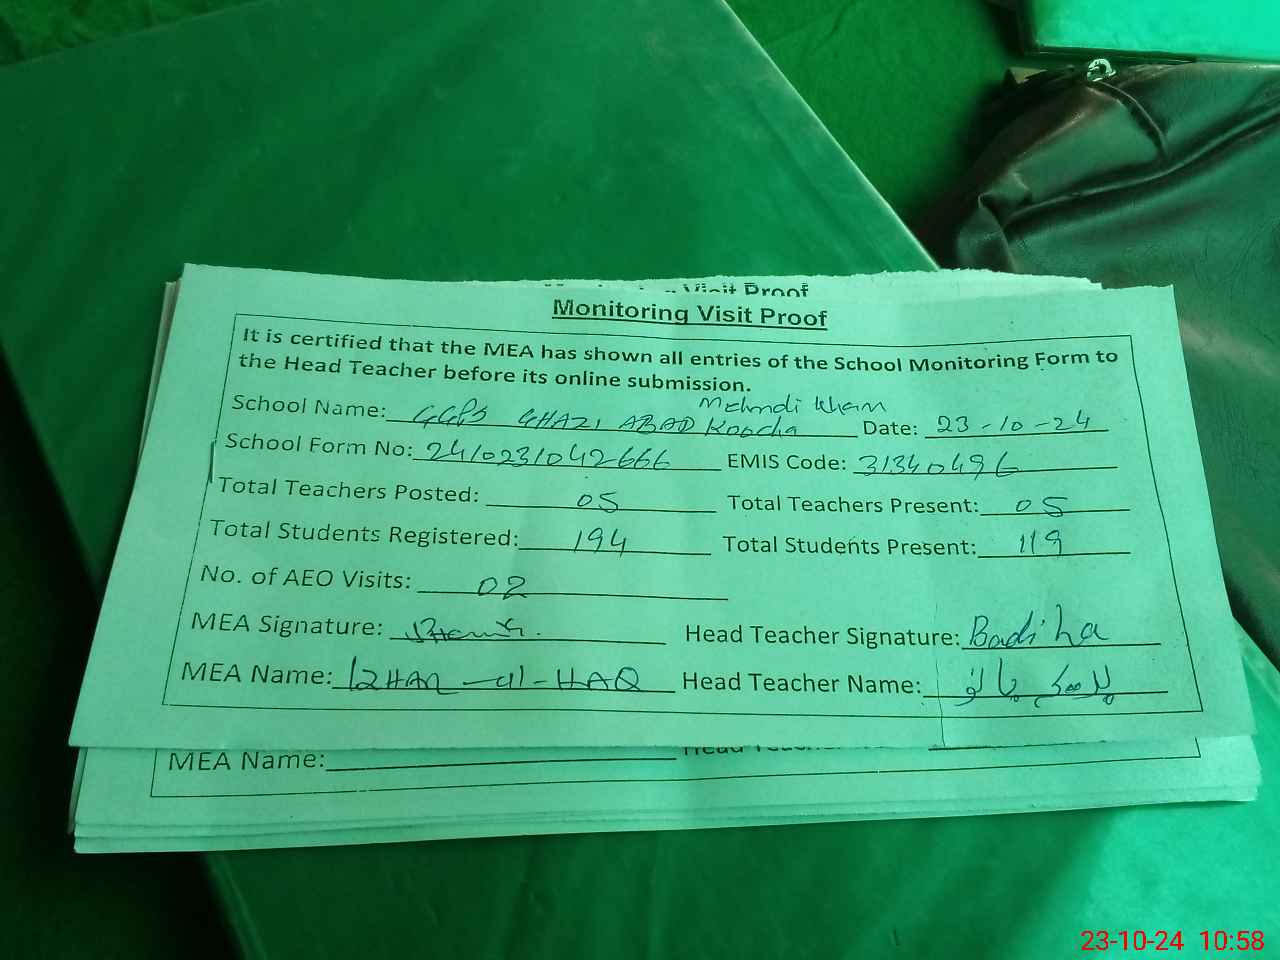 Visit Proof
Monitoring Visit Proof
It is certified that the MEA has shown all entries of the School Monitoring Form to
the Head Teacher before its online submission.
Mehndi Khan
School Name: GGPS GHAZI ABAD Koocha Date: 23-10-24
School Form No: 2410231042666 EMIS Code: 31340496
Total Teachers Posted: 05 Total Teachers Present: 05
Total Students Registered: 194 Total Students Present: 119
No. of AEO Visits: 02
MEA Signature: Head Teacher Signature: Badiha
MEA Name: IZHAR-ul-HAQ Head Teacher Name:
MEA Name: Head Teacher
23-10-24 10:58